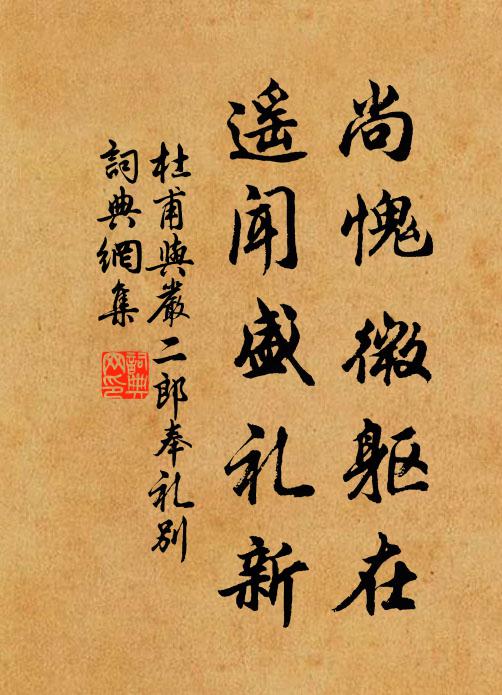 尚愧微躯在
遥闻盛礼新
杜甫與嚴二郎奉礼別
詞典網集
詞典网印